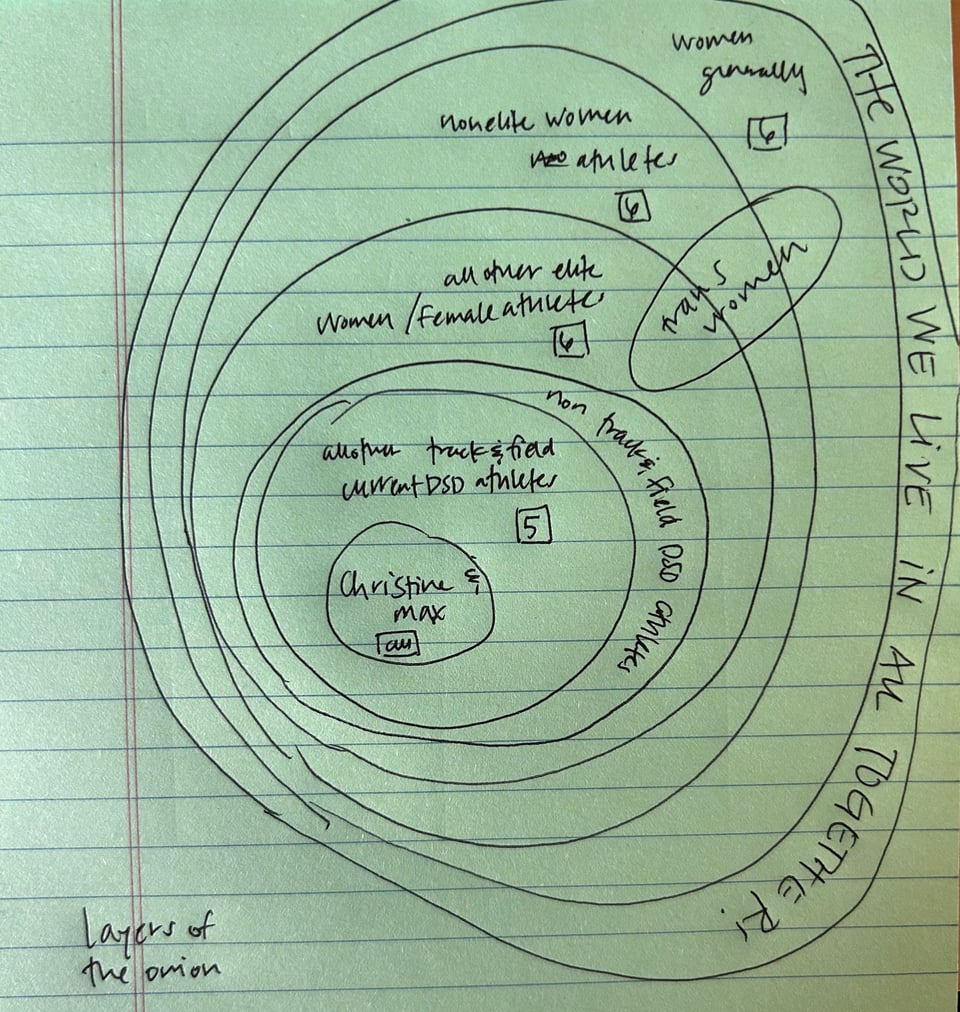 women
generally
6
nonelite women
athletes
6
all other elite
women/female athletes
6
trans
women
non track & field DSD athletes
all other track & field
current DSD athletes
5
Christine &
max
all
THE WORLD WE LIVE IN ALL TOGETHER!
Layers of
the onion